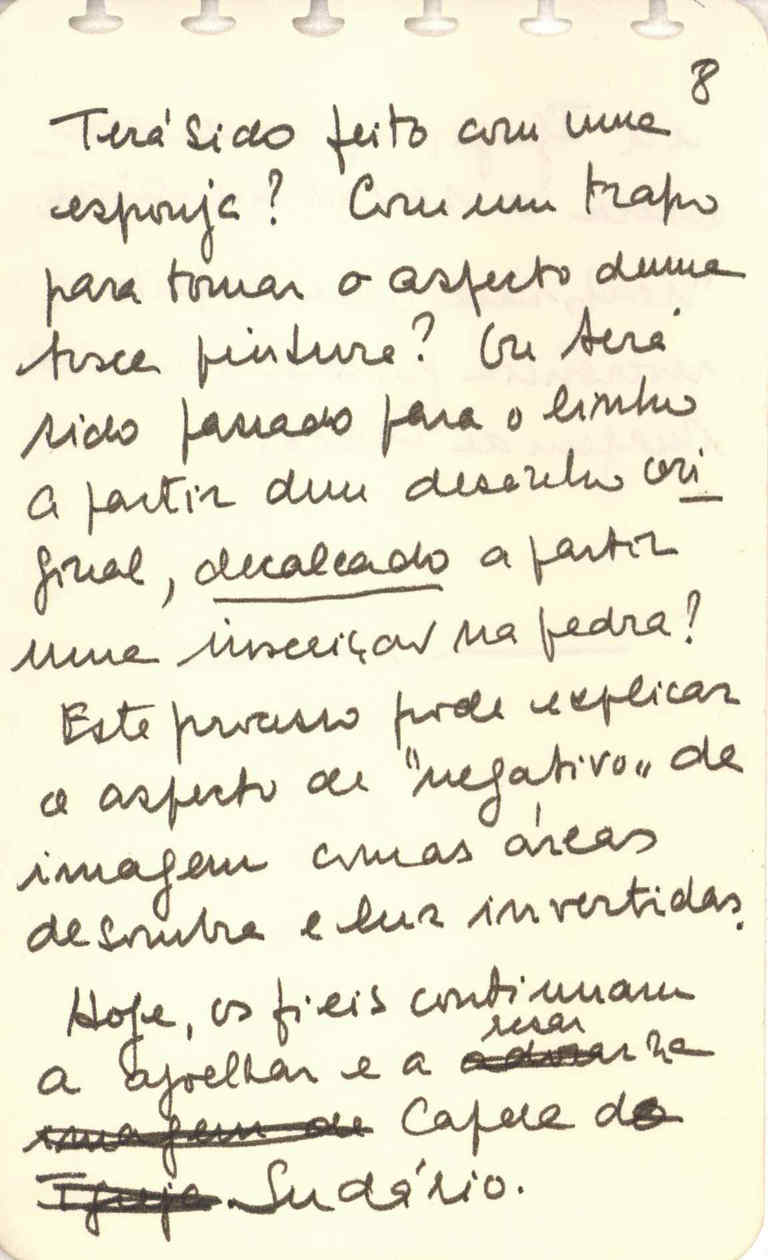 8
Terá sido feito com uma
esponja? Com um trapo
para tomar o aspecto duma
tosca pintura? Ou terá
sido passado para o linho
a partir dum desenho ori
ginal, decalcado a partir
uma inscrição na pedra?
Este processo pode explicar
o aspecto de "negativo" de
imagem com as áreas
de sombra e luz invertidas.
Hoje, os fieis continuam
rezar
a ajoelhar e a adorar na
imagem de Capela do
Igreja Sudário.